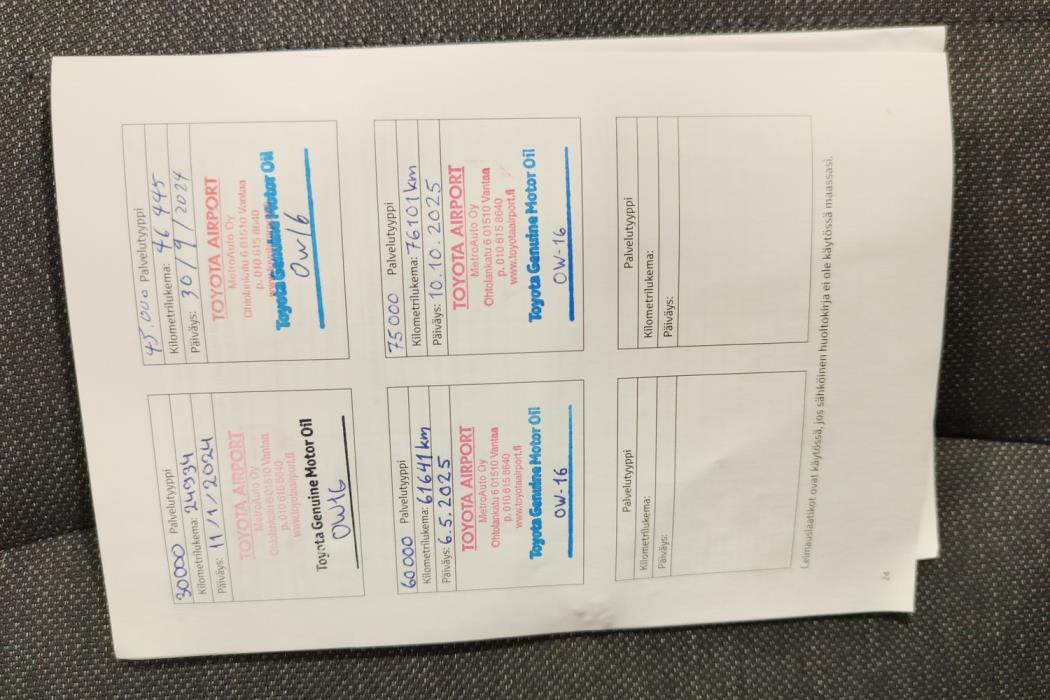 30000 Palvelutyyppi
Kilometrilukema: 24934
Päiväys: 11/1/2024
TOYOTA AIRPORT
MetroAuto Oy
Ohtolankatu 6 01510 Vantaa
p. 010 615 8640
www.toyotaairport.fi
Toyota Genuine Motor Oil
0W16
45.000 Palvelutyyppi
Kilometrilukema:
Päiväys: 30/9/2024
TOYOTA AIRPORT
MetroAuto Oy
Ohtolankatu 6 01510 Vantaa
p. 010 615 8640
Toyota Genuine Motor Oil
0W16
60000 Palvelutyyppi
Kilometrilukema: 61641 km
Päiväys: 6.5.2025
TOYOTA AIRPORT
MetroAuto Oy
Ohtolankatu 6 01510 Vantaa
p. 010 615 8640
www.toyotaairport.fi
Toyota Genuine Motor Oil
0W-16
75000 Palvelutyyppi
Kilometrilukema: 76101 km
Päiväys: 10.10.2025
TOYOTA AIRPORT
MetroAuto Oy
Ohtolankatu 6 01510 Vantaa
p. 010 615 8640
www.toyotaairport.fi
Toyota Genuine Motor Oil
0W-16
Palvelutyyppi
Kilometrilukema:
Päiväys:
Palvelutyyppi
Kilometrilukema:
Päiväys:
Leimauslaatikot ovat käytössä, jos sähköinen huoltokirja ei ole käytössä maassasi.
24